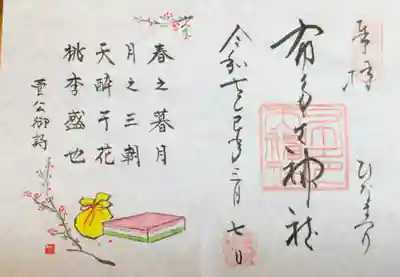 奉拝
ひなまつり
布多天神社
令和七乙巳年三月七日
春之暮月
月之三朝
天酔于花
桃李盛也
菅公御詩